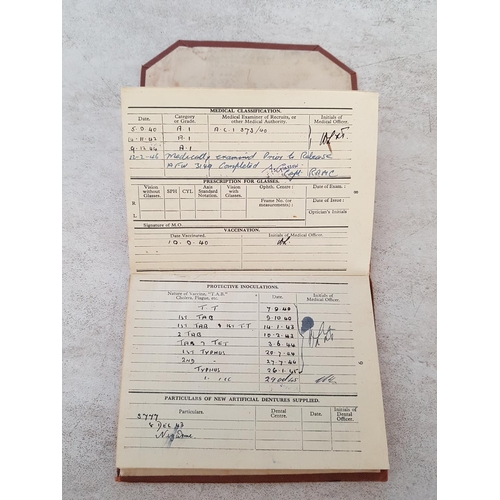 MEDICAL CLASSIFICATION.
Date. Category or Grade. Medical Examiner of Recruits, or other Medical Authority. Initials of Medical Officer.
5.9.40 A.1 A.C.I 373/40
A.1
9.12.46 A.1
12-2-46 Medically examined Prior to Release
A.F.W 3149 Completed Capt RAMC
PRESCRIPTION FOR GLASSES.
Vision without Glasses. SPH CYL Axis Standard Notation. Vision with Glasses. Ophth. Centre : Date of Exam. :
R. Frame No. (or measurements) : Date of Issue :
L. Optician's Initials
Signature of M.O.
VACCINATION.
Date Vaccinated. Initials of Medical Officer.
19.9.40
PROTECTIVE INOCULATIONS.
Nature of Vaccine, "T.A.B." Cholera, Plague, etc. Date. Initials of Medical Officer.
T.T 7.9.40
1st TAB 5.10.40
1st TAB & 1st T.T 14.1.43
2 TAB 10.2.43
TAB & TET 3.6.44
1st TYPHUS 20.7.44
2nd " 27.7.44
TYPHUS 26.1.45
1cc
PARTICULARS OF NEW ARTIFICIAL DENTURES SUPPLIED.
Particulars. Dental Centre. Date. Initials of Dental Officer.
5777
8 DEC 43